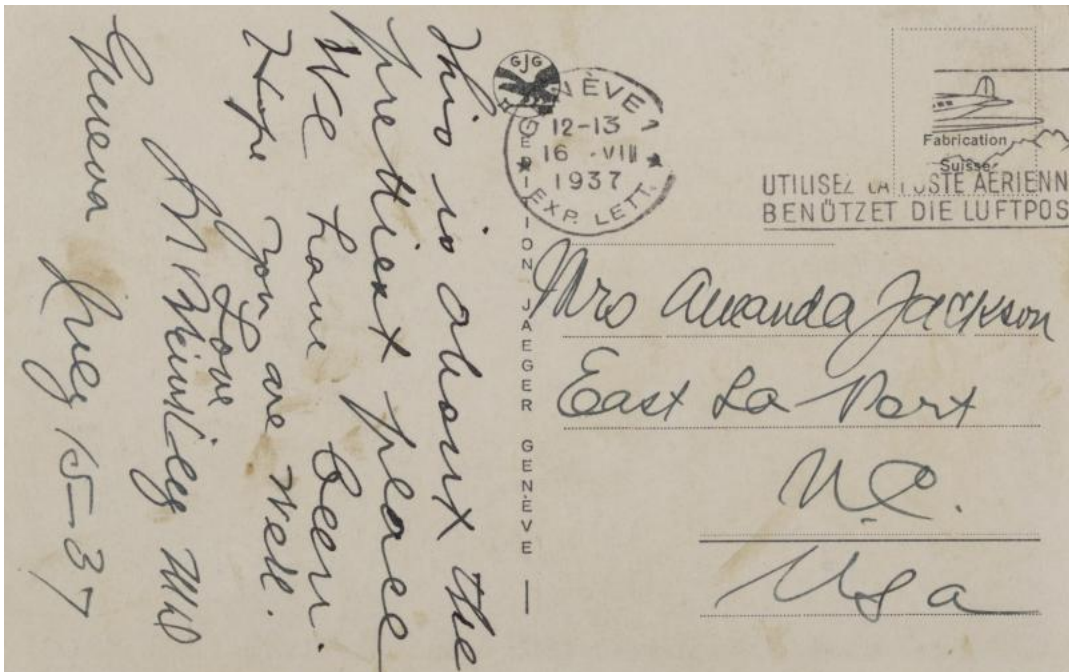 This is about the
prettiest place
We have been.
Hope you are well.
Love
Geneva Aug 15-37
GJG
GENÈVE 1
12-13
16 -VIII
1937
EXP. LETT.
JAEGER GENÈVE
Fabrication
Suisse
UTILISEZ LA POSTE AÉRIENN
BENÜTZET DIE LUFTPOS
Mrs Amanda Jackson
East La Port
N.C.
USa